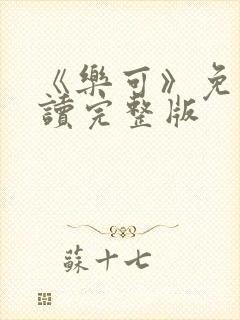 《樂可》免
讀完整版
蘇十七